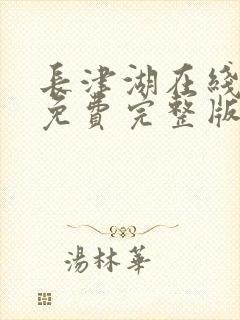 長津湖在綫
免費完整版
湯林華